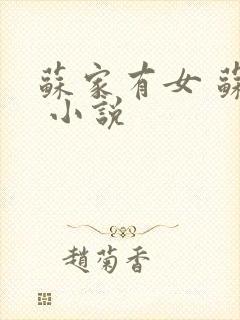 蘇家有女 蘇
小說
趙菊香